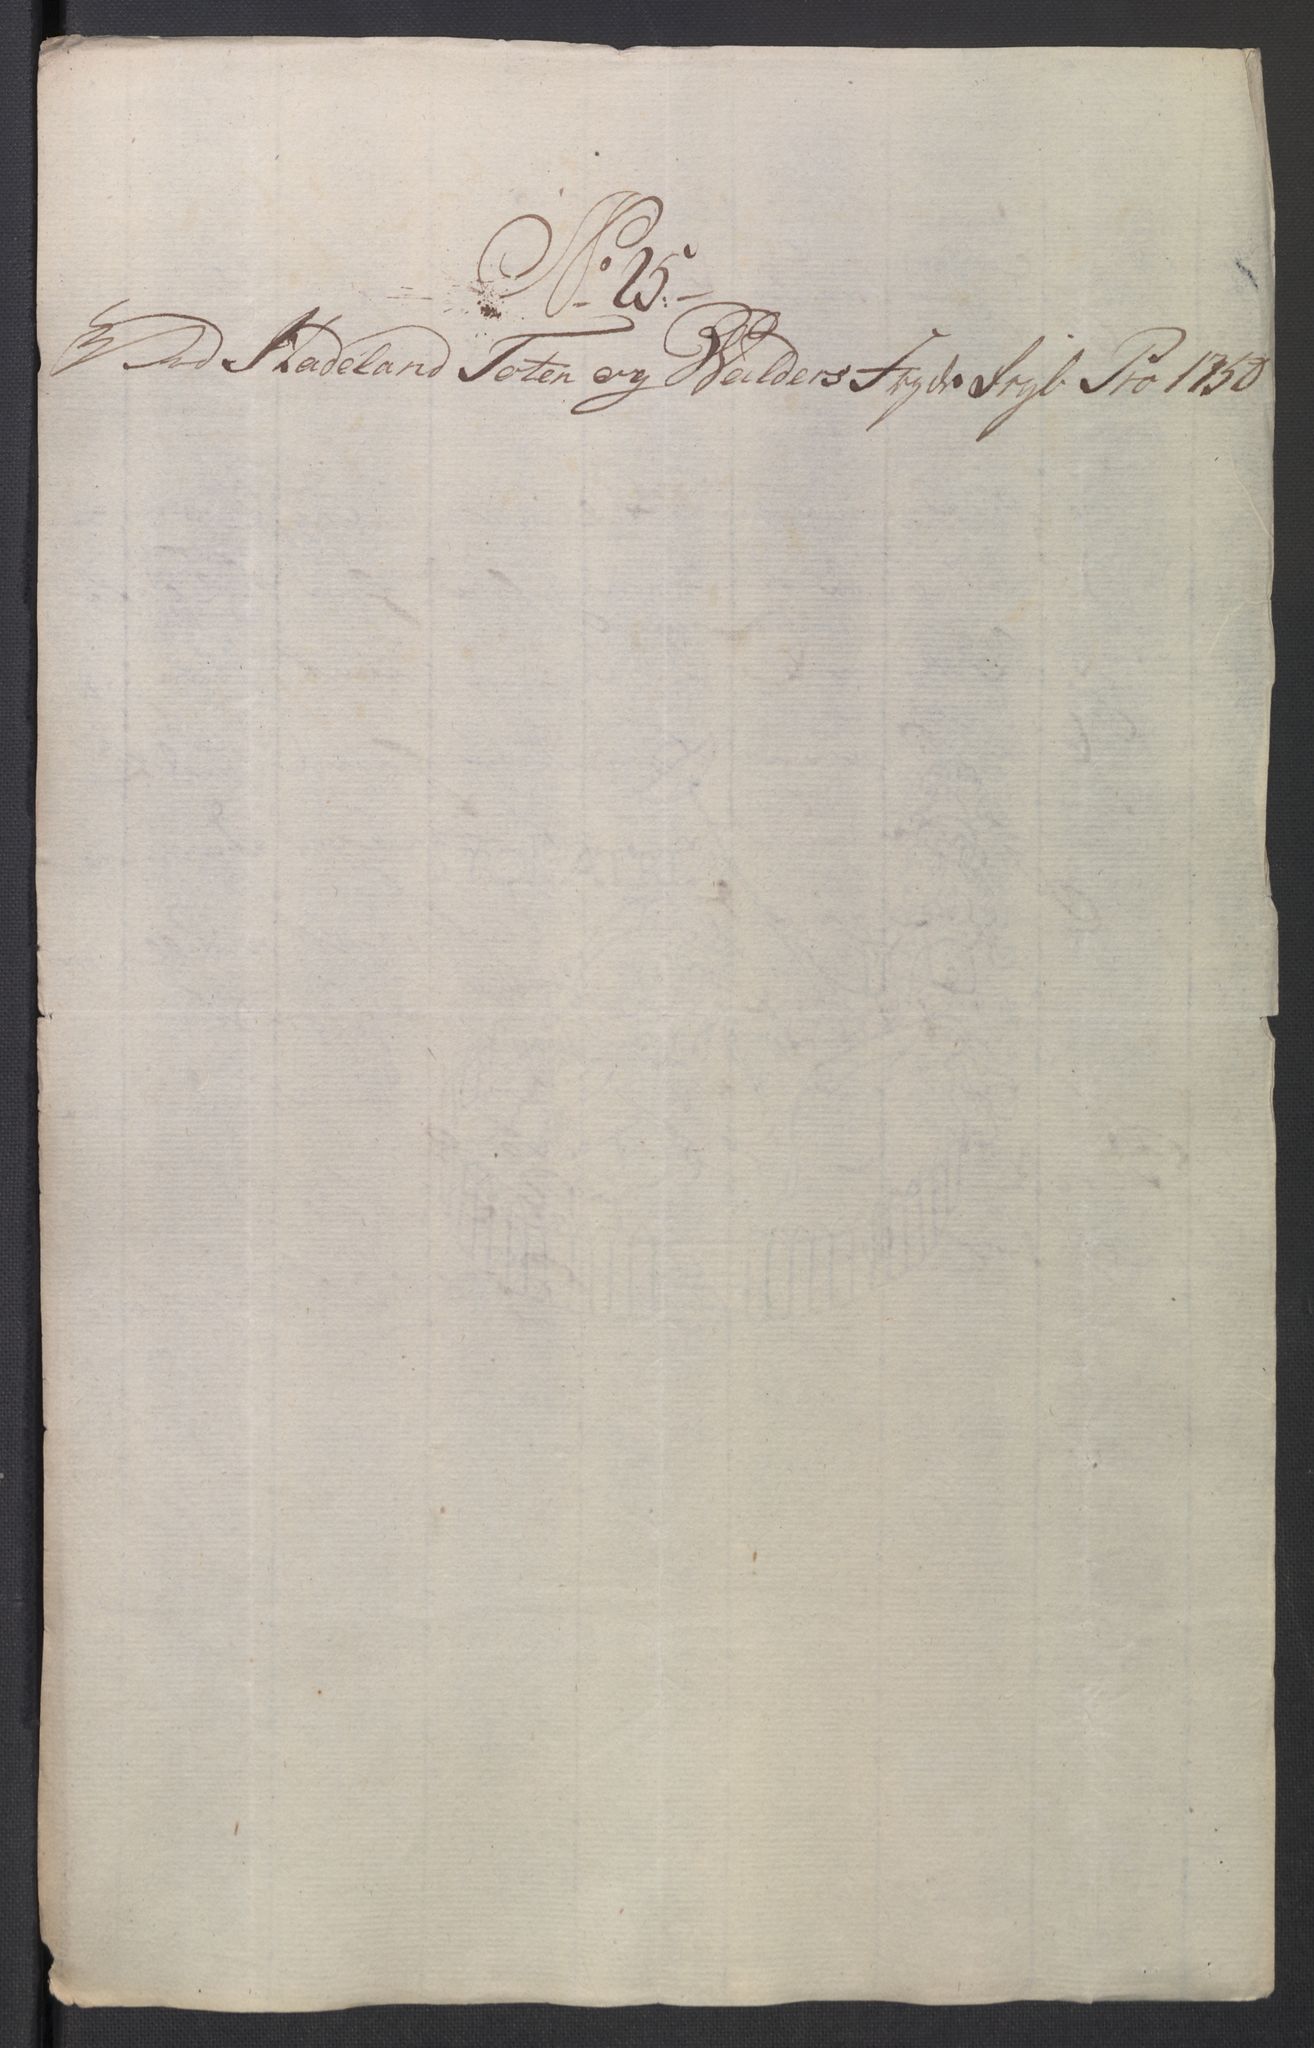 No. 25.
Ved Hadeland Toten og Walders Fogdr. Regb Pro 1750